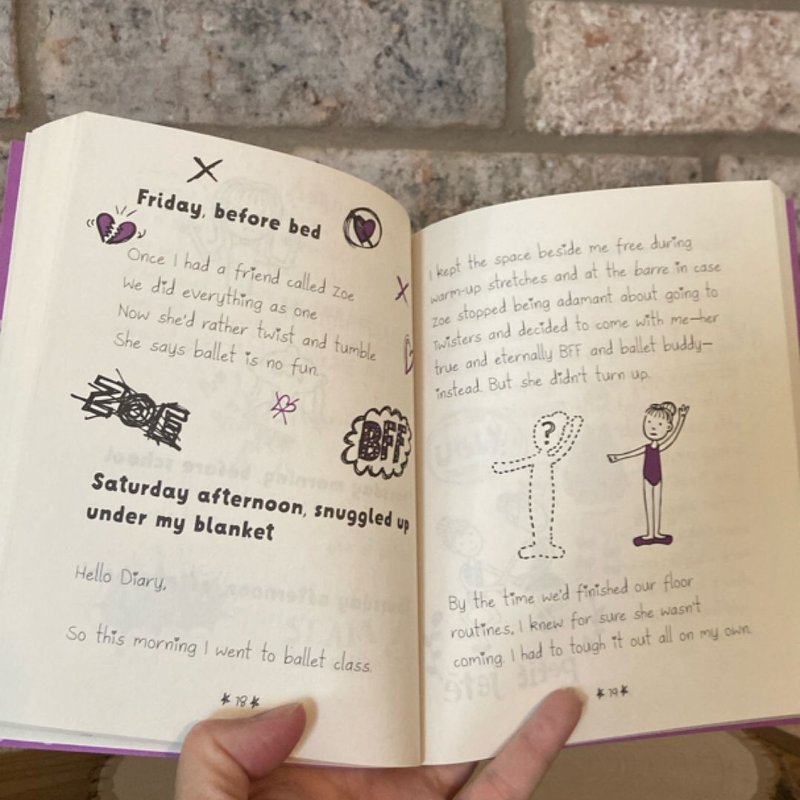 Friday, before bed
Once I had a friend called Zoe
We did everything as one
Now she'd rather twist and tumble
She says ballet is no fun.
ZOE
BFF
Saturday afternoon, snuggled up
under my blanket
Hello Diary,
So this morning I went to ballet class.
*18*
I kept the space beside me free during
warm-up stretches and at the barre in case
Zoe stopped being adamant about going to
Twisters and decided to come with me—her
true and eternally BFF and ballet buddy—
instead. But she didn't turn up.
?
By the time we'd finished our floor
routines, I knew for sure she wasn't
coming. I had to tough it out all on my own.
*19*